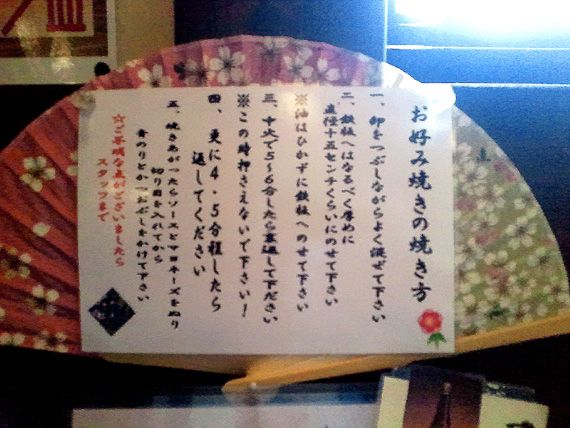 お好み焼きの焼き方
一、卵をつぶしながらよく混ぜて下さい
二、鉄板へはなるべく厚めに
直径十五センチくらいにのせて下さい
※油はひかずに鉄板へのせて下さい
三、中火で5〜6分したら裏返して下ださい
※この時押さえないで下さい！
四、更に4・5分程したら
返してください
五、焼きあがったらソースとマヨネーズをぬり
切り目を入れてから
青のりとかつおぶしをかけて下さい
☆ご不明な点がございましたら
スタッフまで